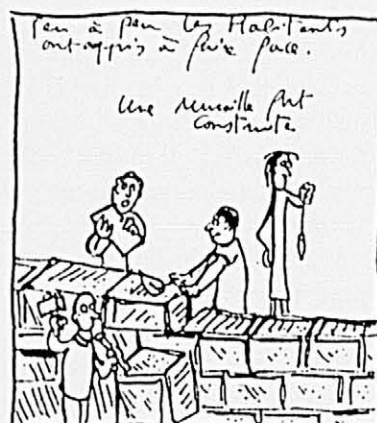 peu à peu les Habitants
ont appris à faire face.
une muraille fut
construite